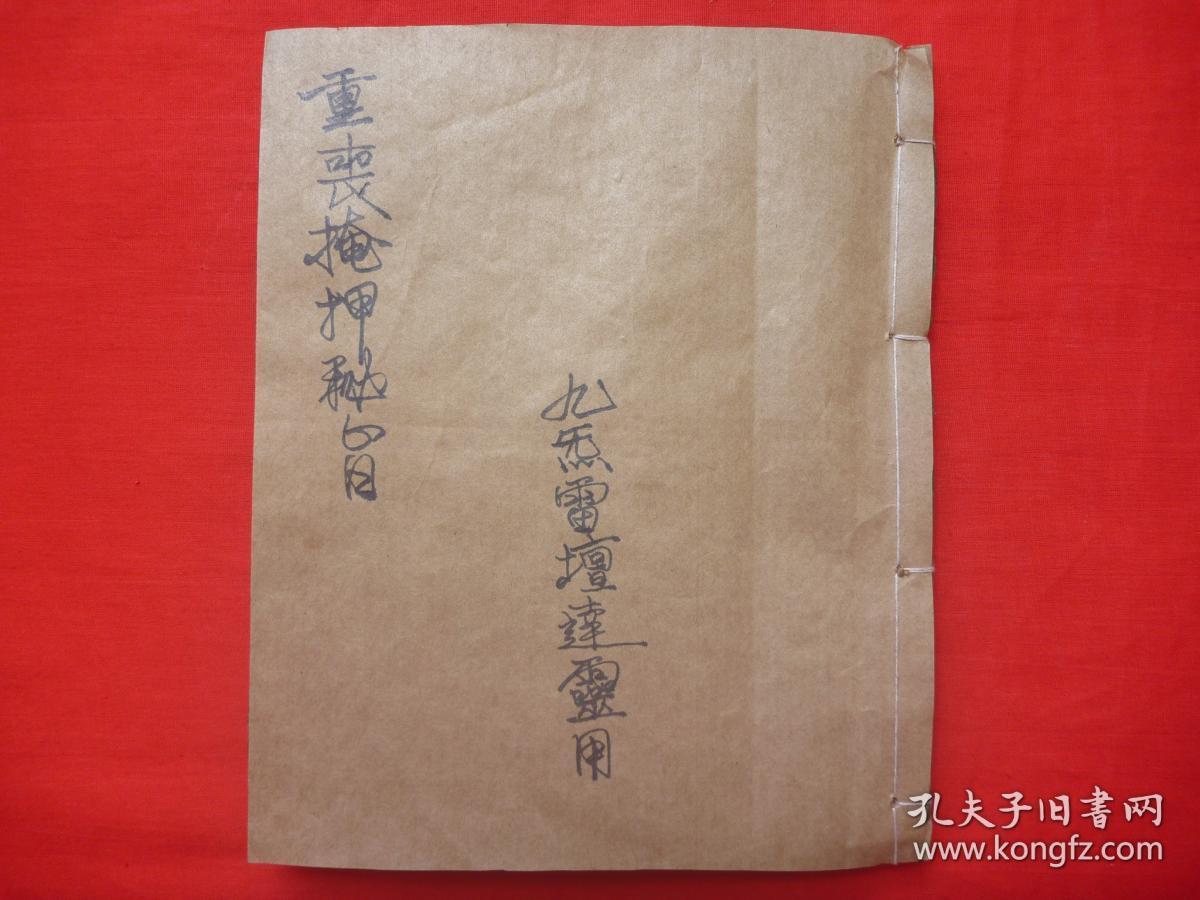 重喪掩押秘旨
九炁雷壇達靈用
孔夫子旧書网
www.kongfz.com